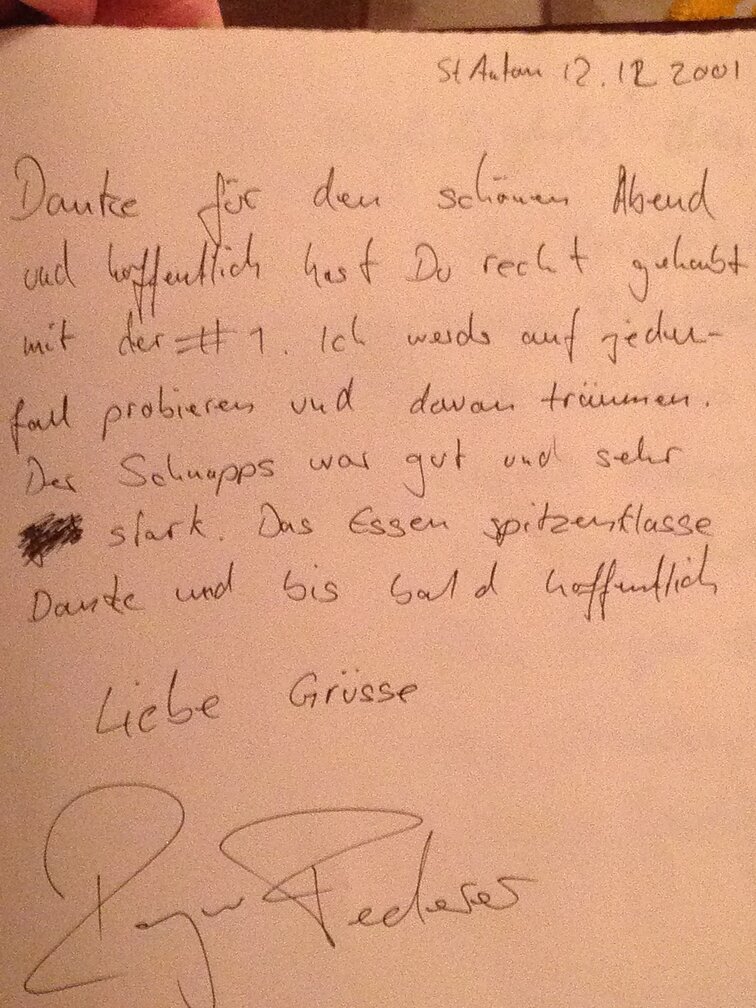 St Anton 12.12 2001
Danke für den schönen Abend
und hoffentlich hast Du recht gehabt
mit der #1. Ich werds auf jeden-
fall probieren und davon träumen.
Der Schnapps war gut und sehr
stark. Das Essen spitzenklasse
Danke und bis bald hoffentlich
Liebe Grüsse
Roger Federer